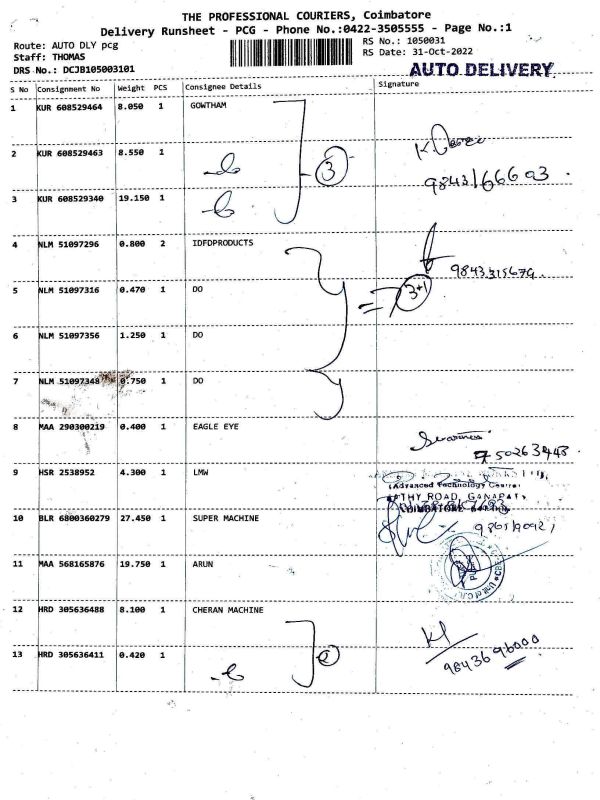 THE PROFESSIONAL COURIERS, Coimbatore
Delivery Runsheet - PCG - Phone No.:0422-3505555 - Page No.:1
Route: AUTO DLY pcg
RS No.: 1050031
Staff: THOMAS
RS Date: 31-Oct-2022
DRS No.: DCJB105003101
AUTO DELIVERY
S No Consignment No Weight PCS Consignee Details Signature
1 KUR 608529464 8.050 1 GOWTHAM
2 KUR 608529463 8.550 1
3
9843166603
3 KUR 608529340 19.150 1
4 NLM 51097296 0.800 2 IDFDPRODUCTS
9843315679
5 NLM 51097316 0.470 1 DO
3+1
6 NLM 51097356 1.250 1 DO
7 NLM 51097348 0.750 1 DO
8 MAA 290300219 0.400 1 EAGLE EYE
750263448
9 HSR 2538952 4.300 1 LMW
(Advanced Technology Centre)
ATHY ROAD, GANAPATHY
COIMBATORE
10 BLR 6800360279 27.450 1 SUPER MACHINE
11 MAA 568165876 19.750 1 ARUN
12 HRD 305636488 8.100 1 CHERAN MACHINE
13 HRD 305636411 0.420 1
2
9843696000